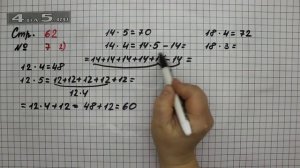 4DA5.RU
Стр. 62
№ 7 2)
12 · 4 = 48
12 · 5 = 12+12+12+12+12=
12·4
= 12·4+12 = 48+12=60
14 · 5 = 70
14 · 4 = 14·5-14=
= 14+14+14+14+14-14 =
18 · 4 = 72
18 · 3 =